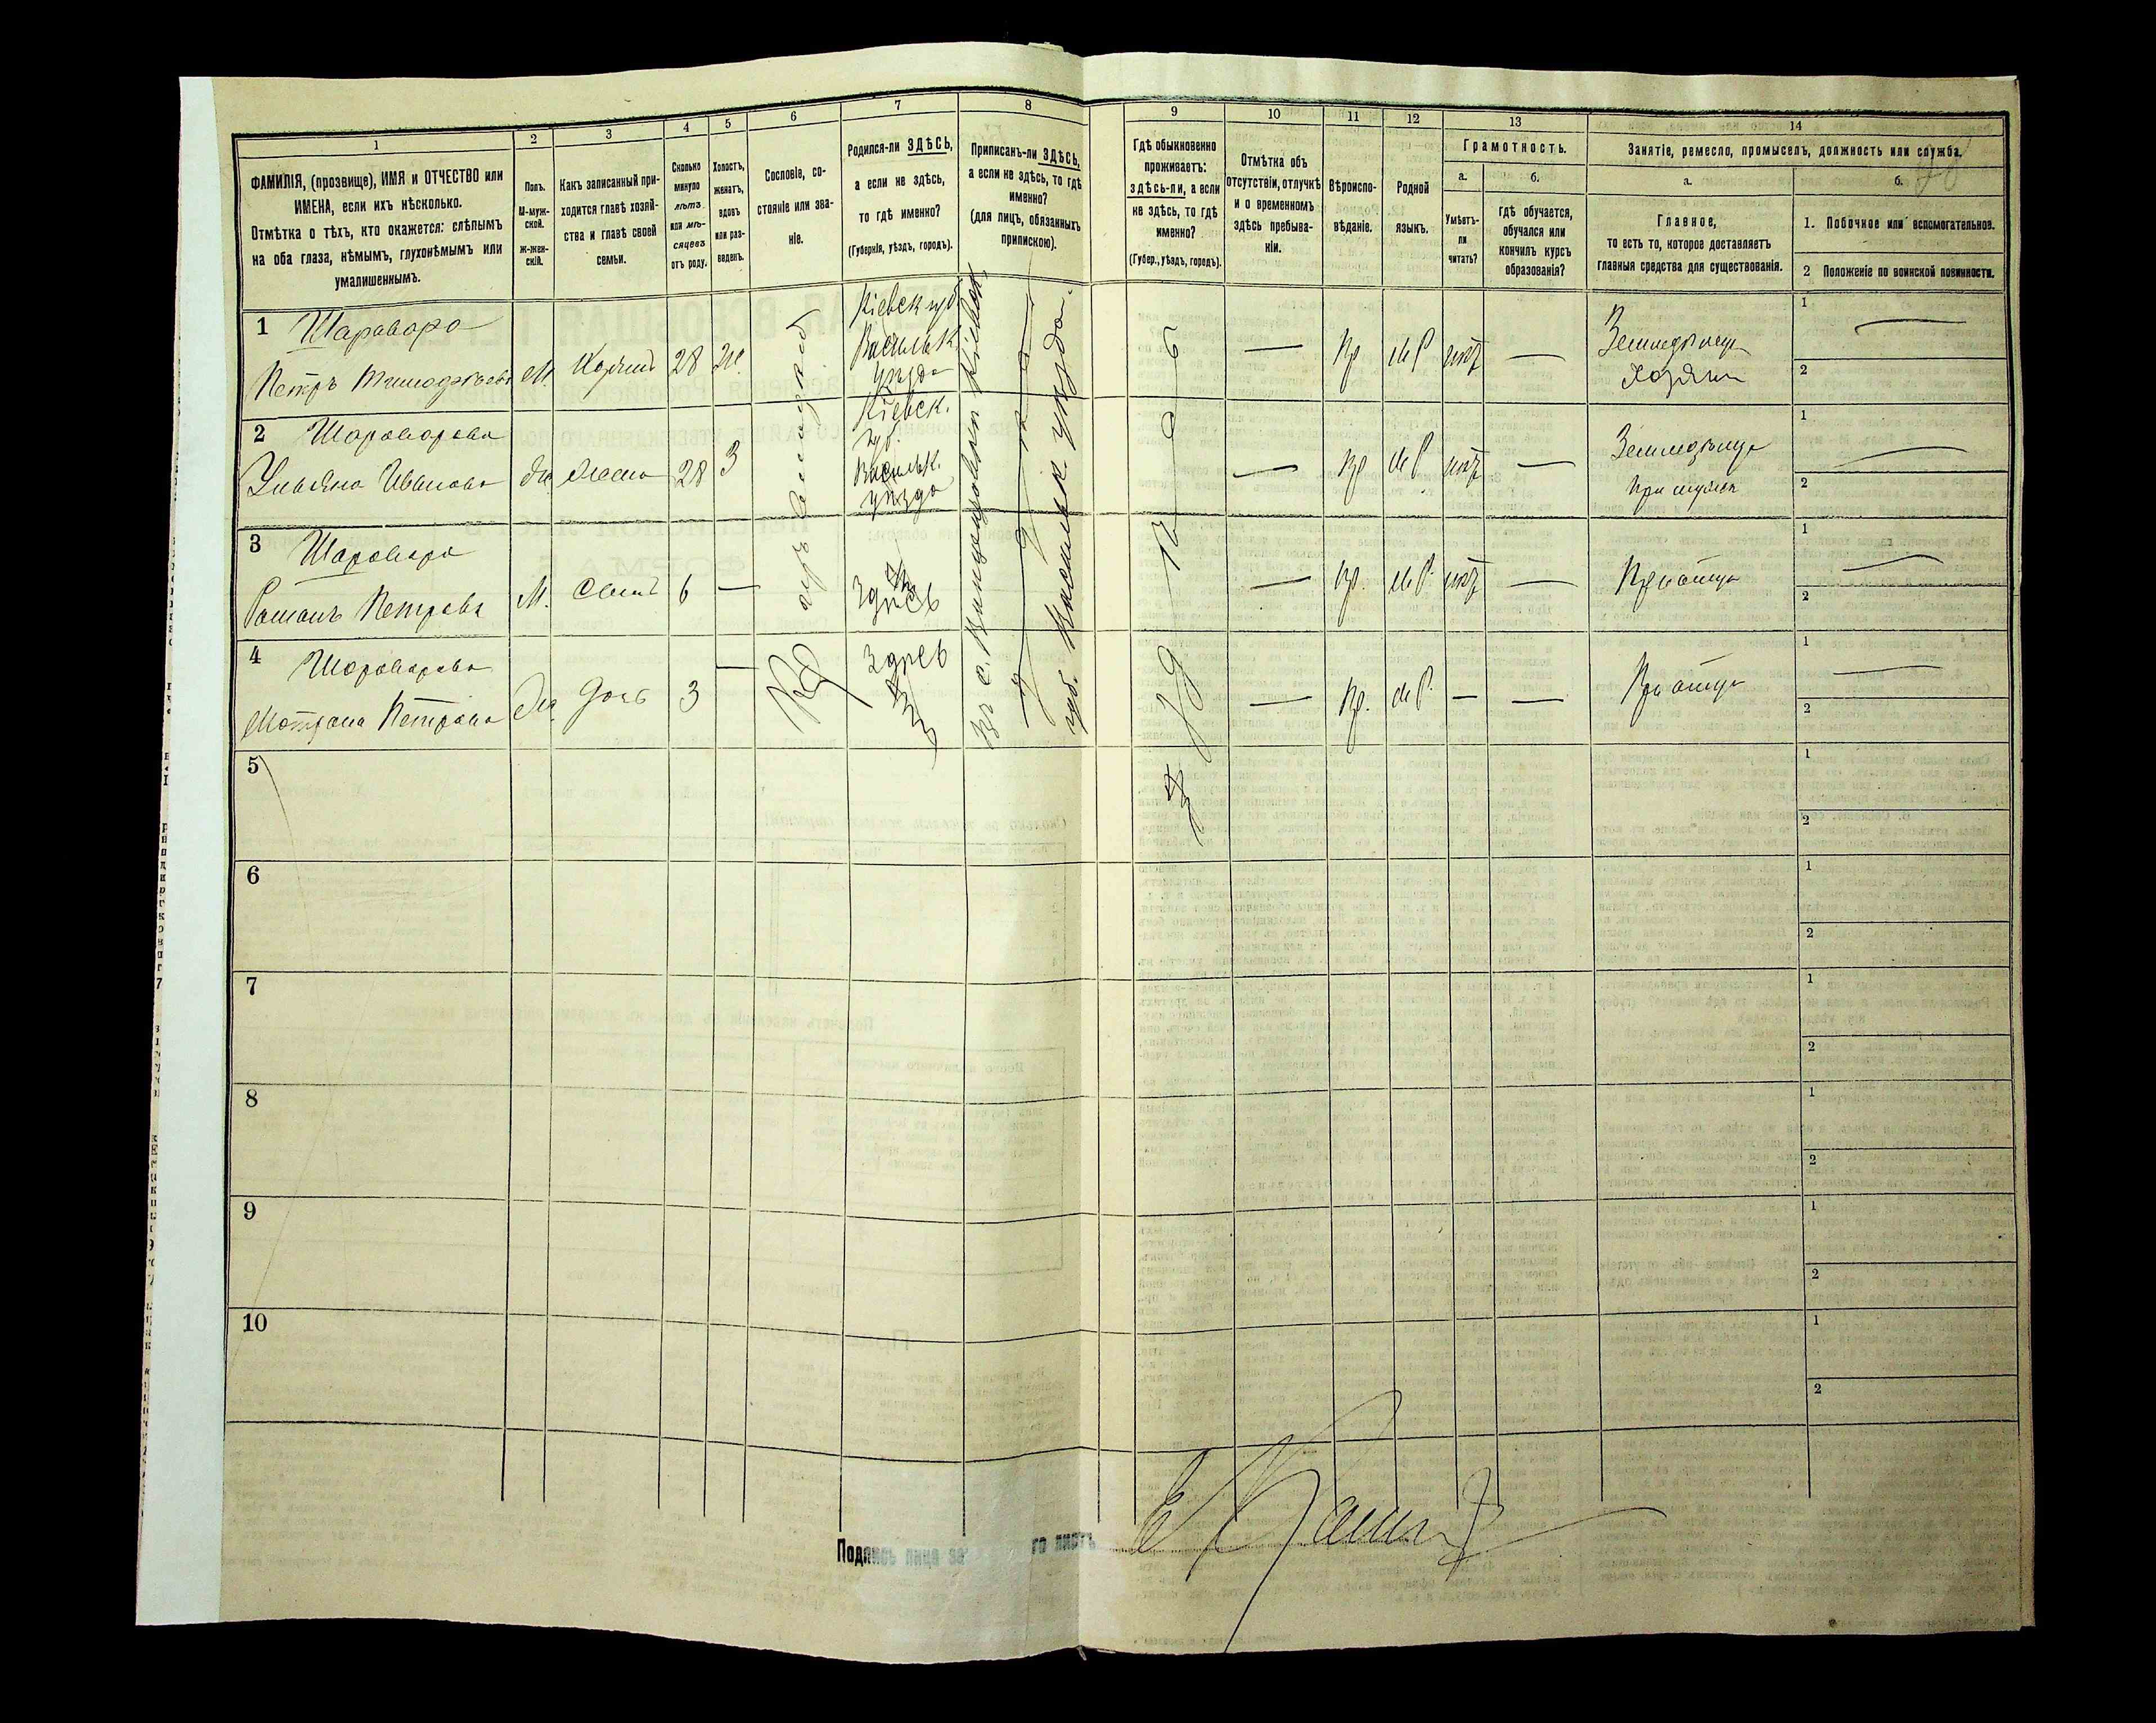 1
2
3
4
5
6
7
8
9
10
11
12
13
14
ФАМИЛІЯ, (прозвище), ИМЯ и ОТЧЕСТВО или
ИМЕНА, если ихъ нѣсколько.
Отмѣтка о тѣхъ, кто окажется: слѣпымъ
на оба глаза, нѣмымъ, глухонѣмымъ или
умалишеннымъ.
Полъ.
М-муж-
ской.
Ж-жен-
скій.
Какъ записанный при-
ходится главѣ хозяй-
ства и главѣ своей
семьи.
Сколько
минуло
лѣтъ
или мѣ-
сяцевъ
отъ роду.
Холостъ,
женатъ,
вдовъ
или раз-
веденъ.
Сословіе, со-
стояніе или зва-
ніе.
Родился-ли ЗДѢСЬ,
а если не здѣсь,
то гдѣ именно?
(Губернія, уѣздъ, городъ).
Приписанъ-ли ЗДѢСЬ,
а если не здѣсь, то гдѣ
именно?
(для лицъ, обязанныхъ
припискою).
Гдѣ обыкновенно
проживаетъ:
здѣсь-ли, а если
не здѣсь, то гдѣ
именно?
(Губер., уѣздъ, городъ).
Отмѣтка объ
отсутствіи, отлучкѣ
и о временномъ
здѣсь пребыва-
ніи.
Вѣроиспо-
вѣданіе.
Родной
языкъ.
Грамотность.
а.
Умѣетъ-
ли
читать?
б.
гдѣ обучается,
обучался или
кончилъ курсъ
образованія?
Занятіе, ремесло, промыселъ, должность или служба.
а.
Главное,
то есть то, которое доставляетъ
главныя средства для существованія.
б.
1. Побочное или вспомогательное.
2 Положеніе по воинской повинности.
1 Шаравара
Петръ Тимофѣевъ М. Хозяинъ 28 Ж.
Кіевск губ.
Васильк.
уѣзда
— Пр М Р нѣт —
Земледѣлец
Хозяин
1 —
2
2 Шараварова
Ульяна Иванова Ж Жена 28 З
Кіевск.
губ.
Васильк.
уѣзда
— Пр М Р нѣт —
Земледѣлец
При мужѣ
1 —
2
3 Шаравара
Романъ Петровъ М. Сынъ 6 —
Здѣсь
— Пр. М Р. нѣт —
При отцѣ
1 —
2
4 Шараварова
Мотрона Петрова Ж. Дочь 3 —
Здѣсь
— Пр. М Р. — —
При отцѣ
1 —
2
Кр
губ. Васильк уѣзда
Здѣсь
5
1
2
6
1
2
7
1
2
8
1
2
9
1
2
10
1
2
Подпись лица за го листъ